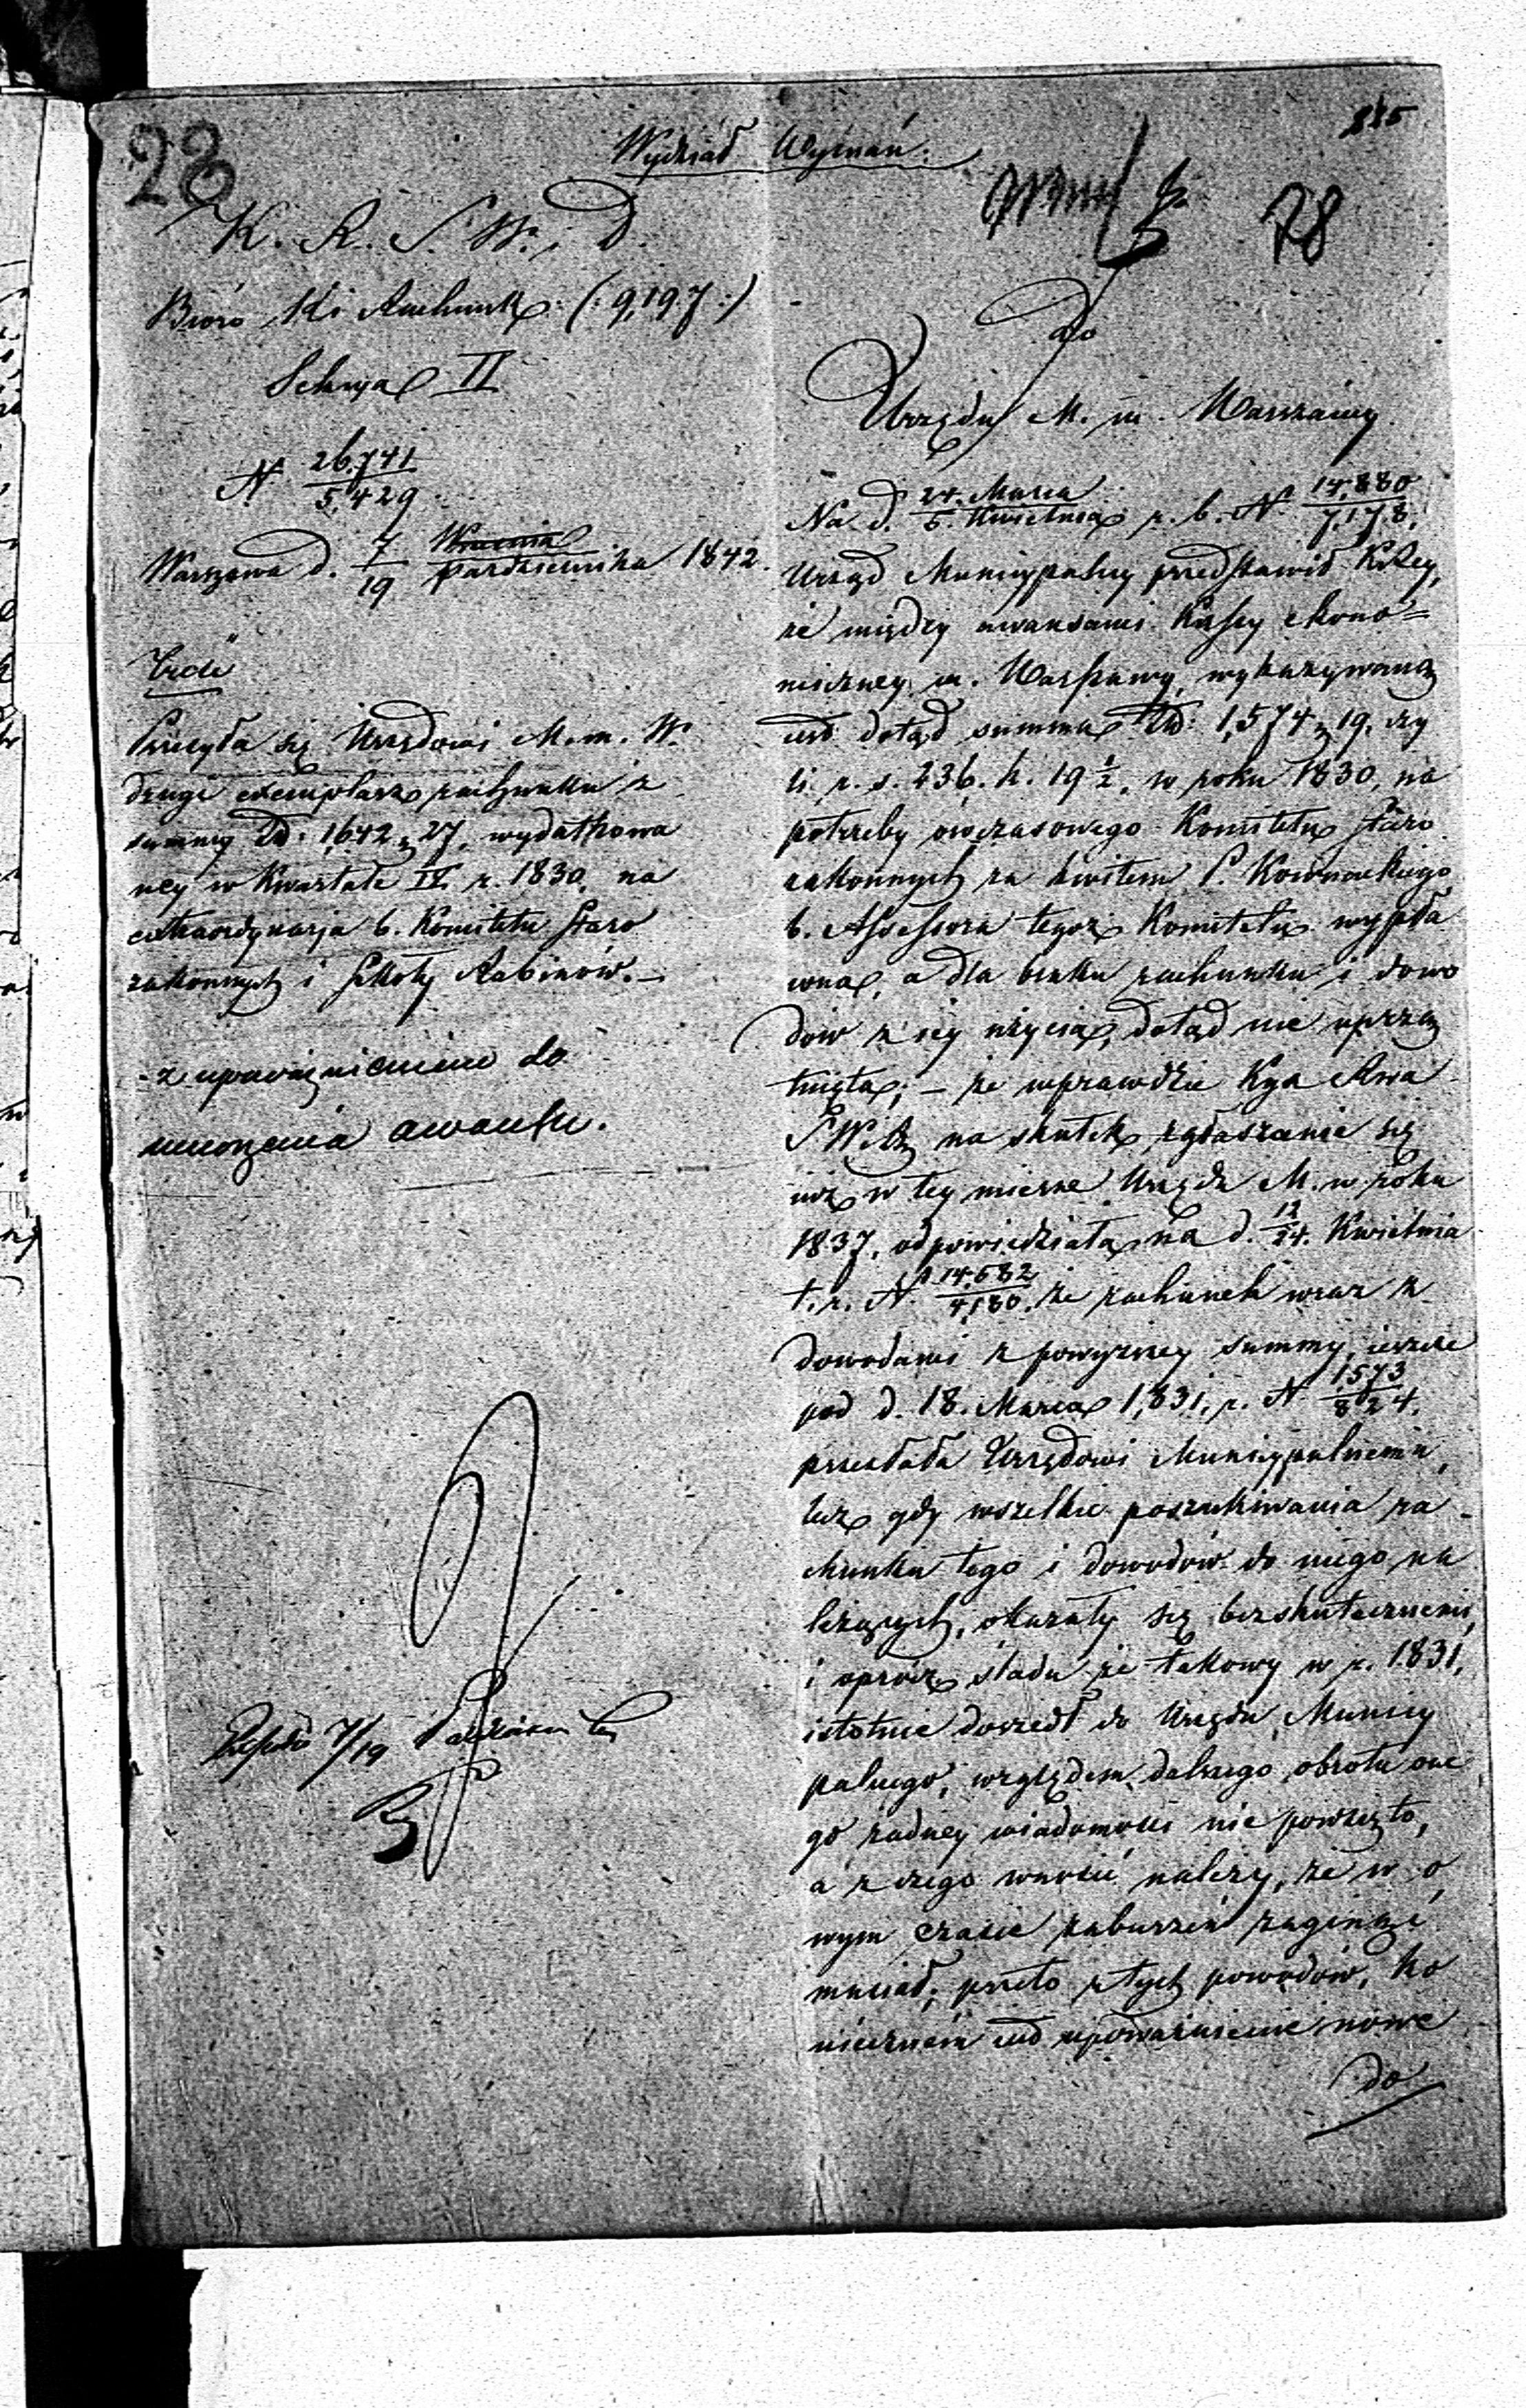 885
28
Wydział Wyznań.
78
K. R. S. W. i D.
Biuro Kti Rachunk: (: 9,197 :)
Sekcya II
N 26.741/5,429
Warszawa d. 7/19 Września/Października 1842.
Przesyła się Urzędowi M. m. W.
drugi exemplarz rachunku z
summy Zł: 1,642 g 27, wydatkowa
ney w Kwartale IV r. 1830, na
extraordynarja b. Komitetu Staro
zakonnych i Szkoły Rabinów. –
z upoważnieniem do
umorzenia awansu.
7/19
do
Urzędu M. m. Warszawy
Na d. 24. Marca/5. Kwietnia r. b. N 14,880/7,178,
Urząd Municypalny przedstawił K. Rey,
że między awansami Kassy ekono=
miczney m. Warszawy, wykazywana
iest dotąd summa Zł: 1,574 g 19, czy
li r. s. 236. k. 19 1/2, w roku 1830, na
potrzeby owczasowego Komitetu Staro
zakonnych za kwitem P. Kownackiego
b. Assessora tegoż Komitetu wypła
cona, a dla braku rachunku i dowo
dów z iey użycia, dotąd nie uprzą
tnięta; – że wprawdzie Kya Rwa
S W i D na skutek zgłaszania się
iuż w tey mierze Urzędu M. w roku
1837, odpowiedziała na d. 12/24. Kwietnia
t. r. N 14,682/4,180. że rachunek wraz z
dowodami z powyższey summy, ieszcze
pod d. 18. Marca 1,831, r. N 1573/824.
przesłała Urzędowi Municypalnemu,
lecz gdy wszelkie poszukiwania ra-
chunku tego i dowodów do niego na
leżących, okazały się bezskutecznemi,
i oprócz śladu że takowy w r. 1831,
istotnie doszedł do Urzędu Municy
palnego, względem dalszego obrotu one
go żadney wiadomości nie powzięto,
a z czego wnosić należy, że w o
wym czasie zaburzeń zaginąć
musiał; przeto z tych powodów, ko
niecznem iest upoważnienie nowe
do